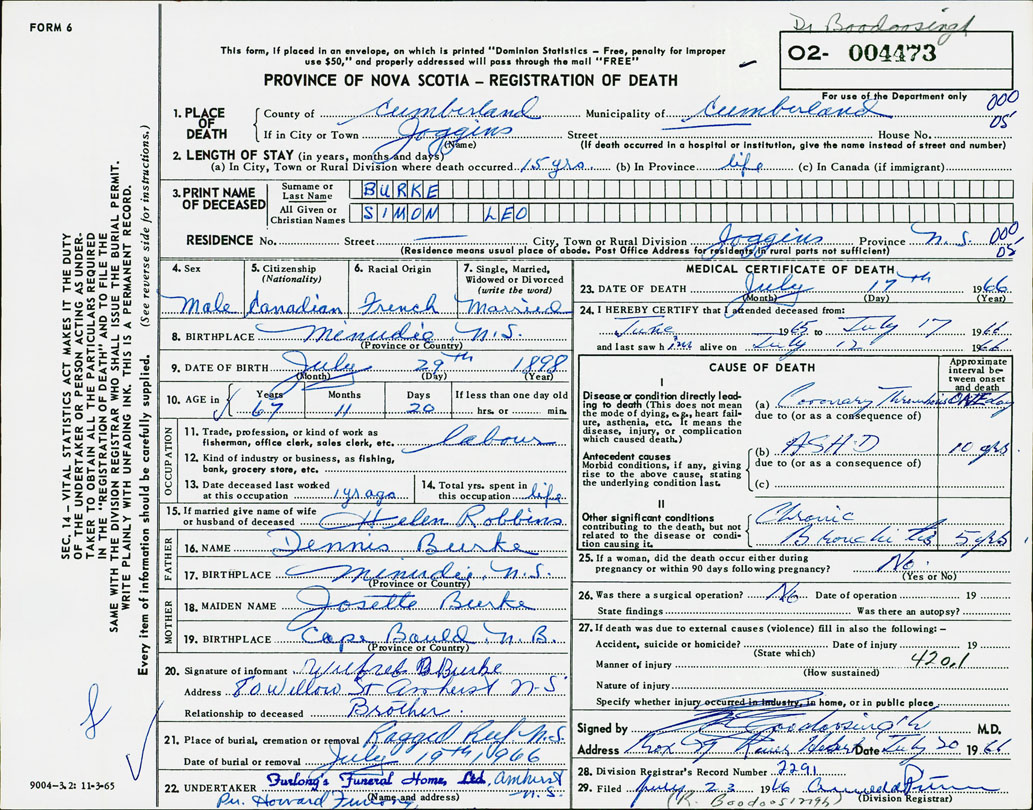 FORM 6
Dr Boodoosingh
This form, if placed in an envelope, on which is printed "Dominion Statistics – Free, penalty for improper
use $50," and properly addressed will pass through the mail "FREE"
O2- 004473
PROVINCE OF NOVA SCOTIA – REGISTRATION OF DEATH
For use of the Department only
000
05
1. PLACE OF DEATH
County of Cumberland Municipality of Cumberland
If in City or Town Joggins Street House No.
(Name) (If death occurred in a hospital or institution, give the name instead of street and number)
2. LENGTH OF STAY (in years, months and days)
(a) In City, Town or Rural Division where death occurred 15 yrs. (b) In Province life (c) In Canada (if immigrant)
3. PRINT NAME OF DECEASED
Surname or Last Name BURKE
All Given or Christian Names SIMON LEO
RESIDENCE No. Street — City, Town or Rural Division Joggins Province N.S. 000
05
(Residence means usual place of abode. Post Office Address for residents in rural parts not sufficient)
4. Sex
Male
5. Citizenship
(Nationality)
Canadian
6. Racial Origin
French
7. Single, Married,
Widowed or Divorced
(write the word)
Married
8. BIRTHPLACE Minudie, N.S.
(Province or Country)
9. DATE OF BIRTH July 29th 1898
(Month) (Day) (Year)
10. AGE in Years Months Days If less than one day old
67 11 20 hrs. or min.
OCCUPATION
11. Trade, profession, or kind of work as
fisherman, office clerk, sales clerk, etc. labour
12. Kind of industry or business, as fishing,
bank, grocery store, etc.
13. Date deceased last worked
at this occupation 1 yr ago
14. Total yrs. spent in
this occupation life
15. If married give name of wife
or husband of deceased Helen Robbins
FATHER
16. NAME Dennis Burke
17. BIRTHPLACE Minudie, N.S.
(Province or Country)
MOTHER
18. MAIDEN NAME Josette Burke
19. BIRTHPLACE Cape Bauld N.B.
(Province or Country)
20. Signature of informant Wilfred B Burke
Address 80 Willow St Amherst N.S.
Relationship to deceased Brother.
21. Place of burial, cremation or removal Ragged Reef N.S.
Date of burial or removal July 19th, 1966
22. UNDERTAKER Furlong's Funeral Home, Ltd. Amherst N.S.
(Name and address)
Per. Howard Furlong
MEDICAL CERTIFICATE OF DEATH
23. DATE OF DEATH July 17th 1966
(Month) (Day) (Year)
24. I HEREBY CERTIFY that I attended deceased from:
June 1965 to July 17 1966
and last saw him alive on July 12 1966
CAUSE OF DEATH
Approximate
interval be-
tween onset
and death
I
Disease or condition directly lead-
ing to death (This does not mean
the mode of dying, e.g., heart fail-
ure, asthenia, etc. It means the
disease, injury, or complication
which caused death.)
(a) Coronary Thrombosis ONE day
due to (or as a consequence of)
Antecedent causes
Morbid conditions, if any, giving
rise to the above cause, stating
the underlying condition last.
(b) ASHD 10 yrs
due to (or as a consequence of)
(c)
II
Other significant conditions
contributing to the death, but not
related to the disease or condi-
tion causing it.
Chronic
Bronchitis 5 yrs
25. If a woman, did the death occur either during
pregnancy or within 90 days following pregnancy? No.
(Yes or No)
26. Was there a surgical operation? No Date of operation 19
State findings Was there an autopsy?
27. If death was due to external causes (violence) fill in also the following: –
Accident, suicide or homicide? Date of injury 19
(State which)
420.1
Manner of injury
(How sustained)
Nature of injury
Specify whether injury occurred in industry, in home, or in public place
Signed by Boodoosingh M.D.
Address Box 79 River Hebert Date July 20 1966
28. Division Registrar's Record Number 2291
29. Filed July 23 1966
(Division Registrar)
(R. Boodoosingh)
SEC. 14 – VITAL STATISTICS ACT MAKES IT THE DUTY
OF THE UNDERTAKER OR PERSON ACTING AS UNDER-
TAKER TO OBTAIN ALL THE PARTICULARS REQUIRED
IN THE "REGISTRATION OF DEATH" AND TO FILE THE
SAME WITH THE DIVISION REGISTRAR WHO SHALL ISSUE THE BURIAL PERMIT.
WRITE PLAINLY WITH UNFADING INK. THIS IS A PERMANENT RECORD.
Every item of information should be carefully supplied. (See reverse side for instructions.)
9004-3.2: 11-3-65